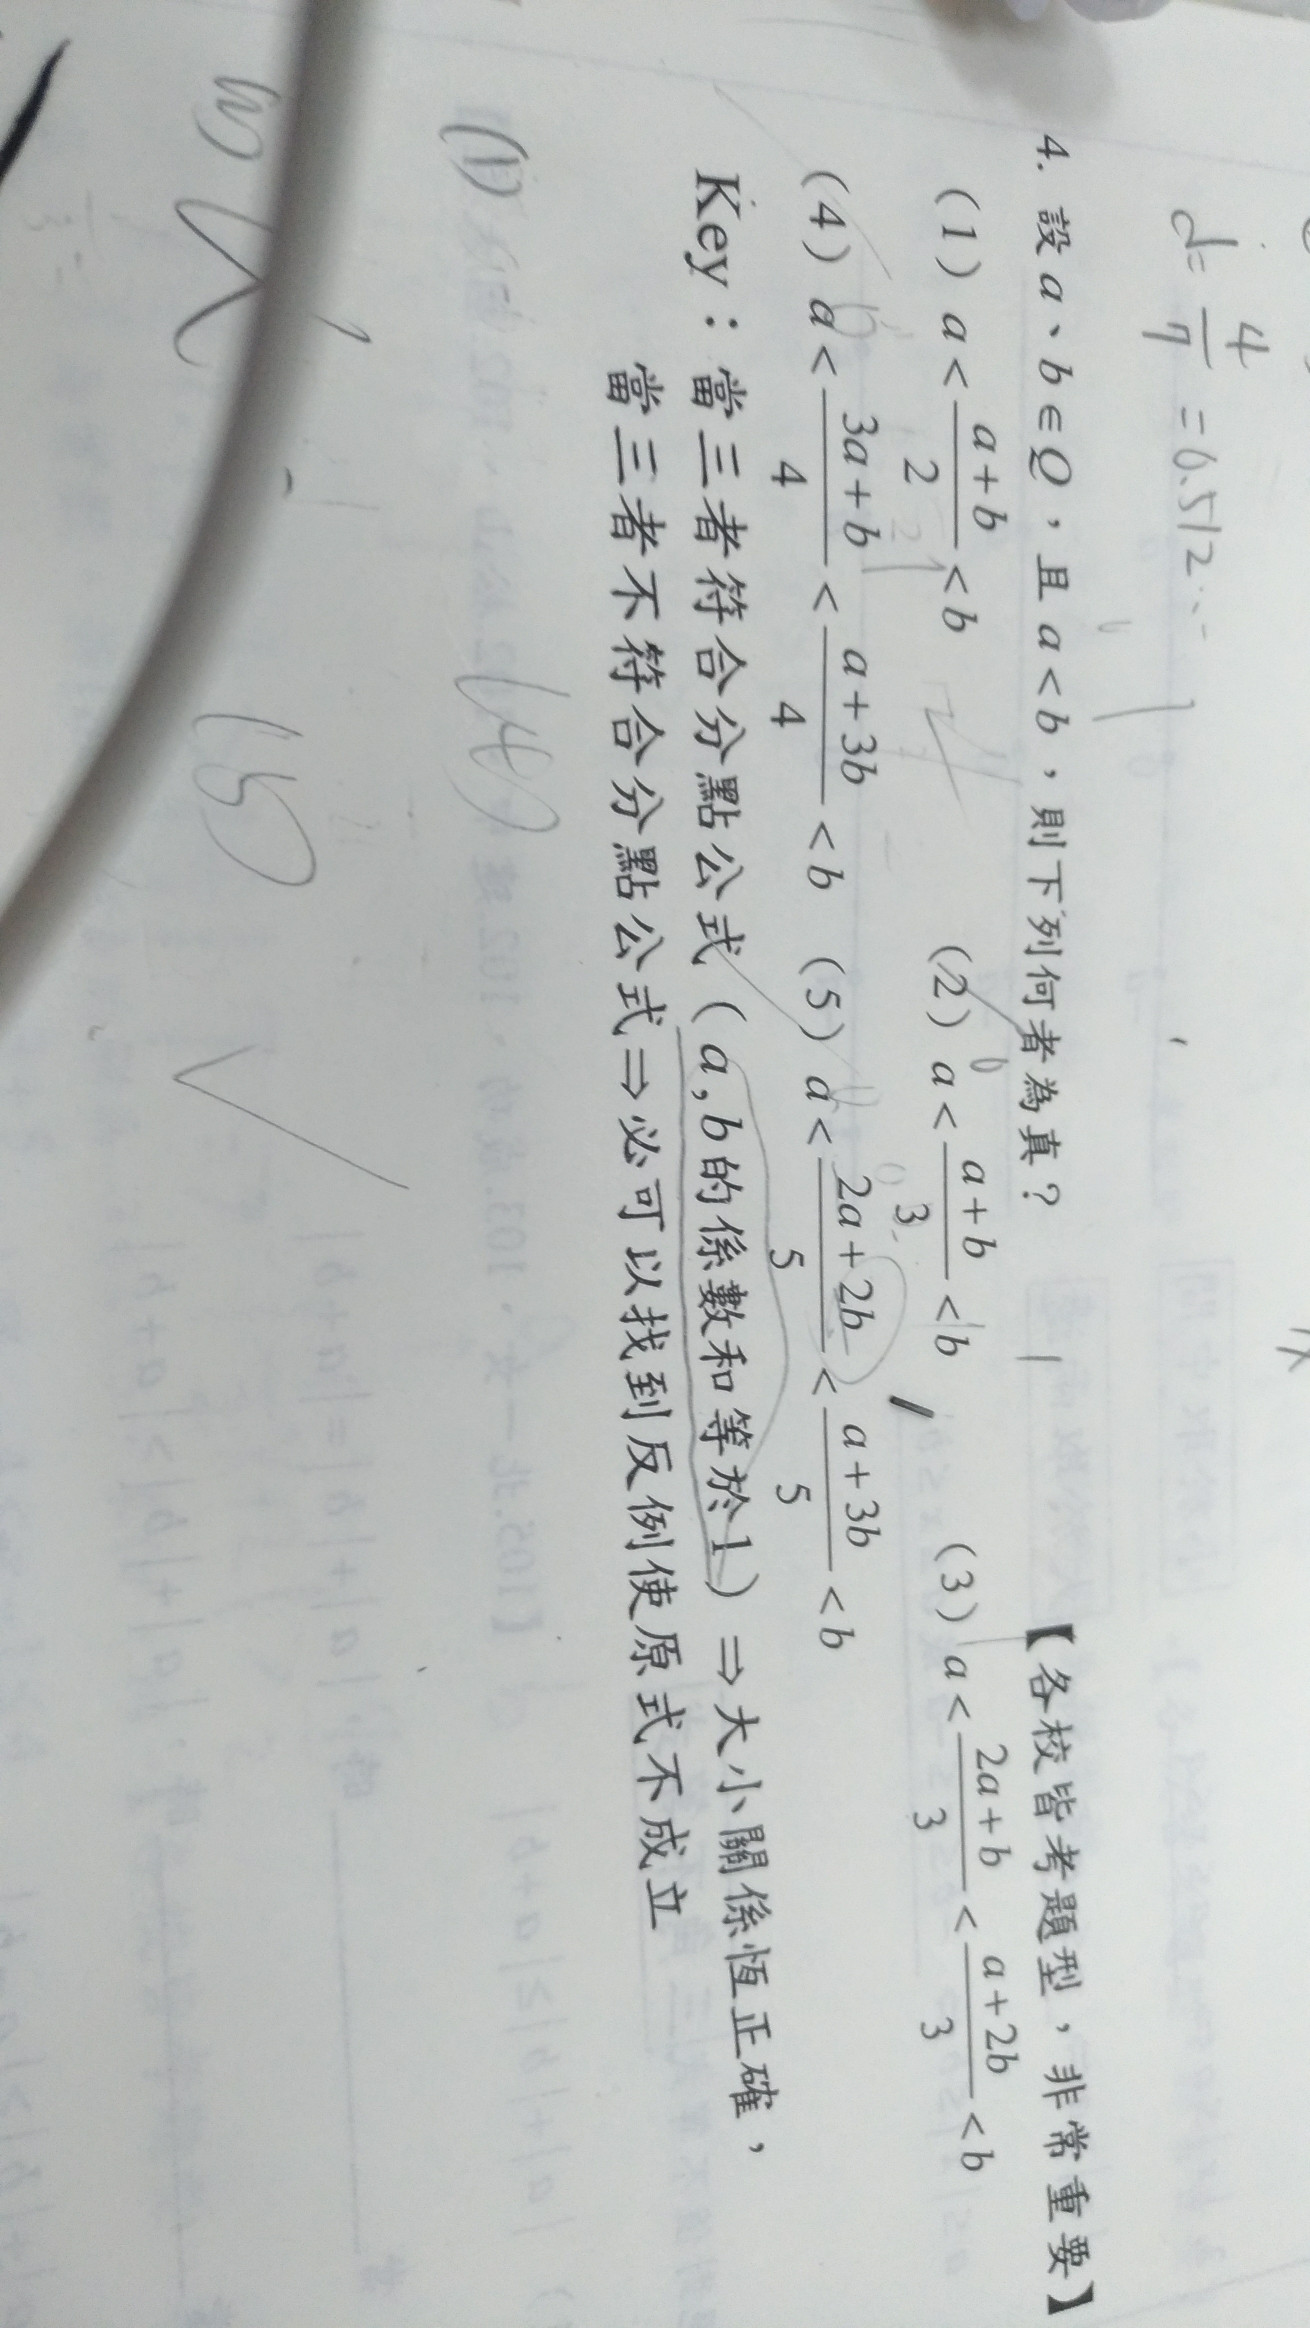 d = 4/7 = 0.512...
4. 設 a、b ∈ Q，且 a < b，則下列何者為真？ 【各校皆考題型，非常重要】
(1) a < (a+b)/2 < b (2) a < (a+b)/3 < b (3) a < (2a+b)/3 < (a+2b)/3 < b
(4) a < (3a+b)/4 < (a+3b)/4 < b (5) a < (2a+2b)/5 < (a+3b)/5 < b
Key：當三者符合分點公式（a,b的係數和等於1）⇒大小關係恆正確，
當三者不符合分點公式⇒必可以找到反例使原式不成立
(1) (4)
(5)